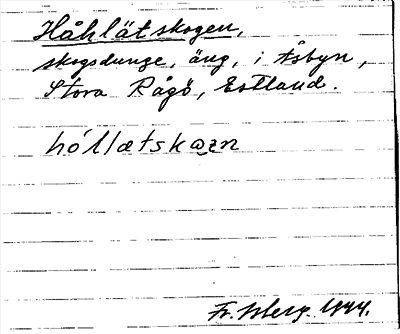 Håhlätskogen,
skogsdunge, äng, i Åsbyn,
Stora Rågö, Estland.
hóllætskɷzn
Fr. 1944.